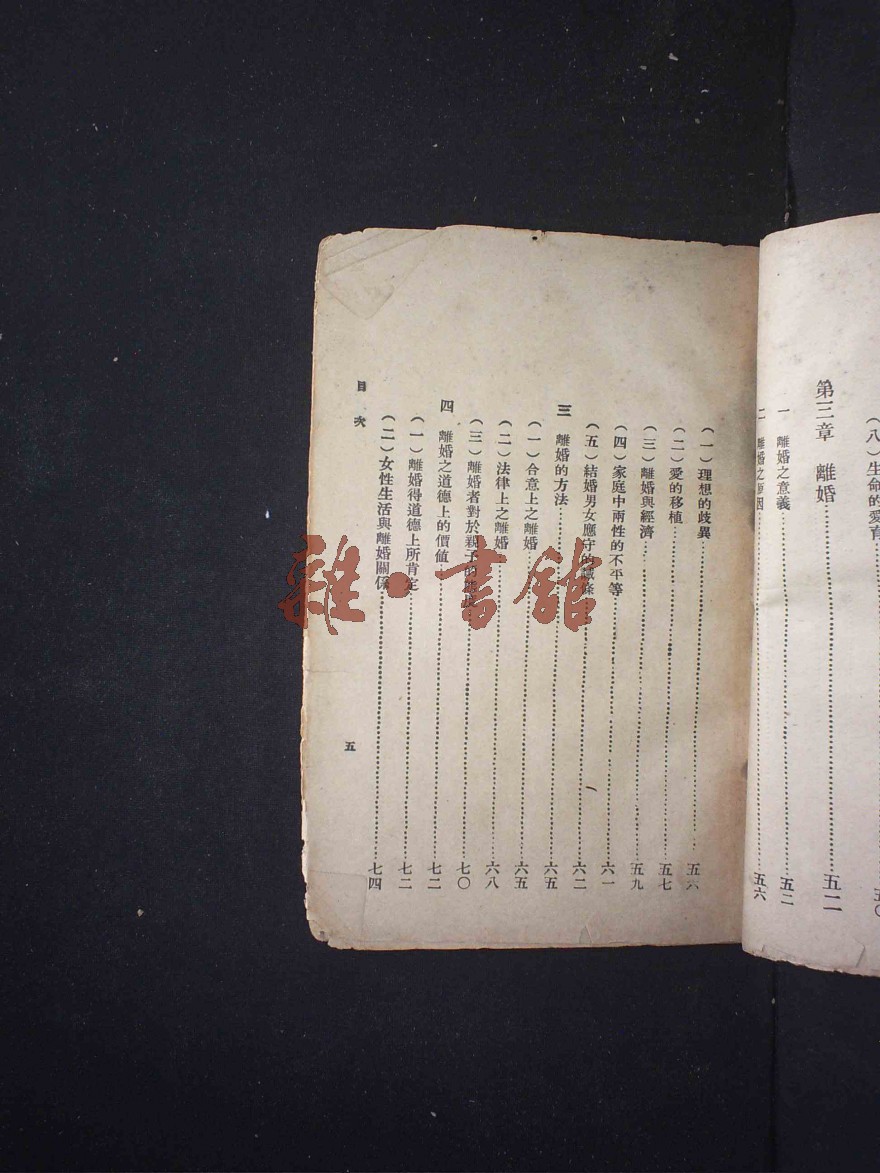 (八)生命的愛育
五〇
第三章　離婚……五二
一　離婚之意義……五二
二　離婚之原因……五六
(一)理想的歧異……五六
(二)愛的移植……五七
(三)離婚與經濟……五九
(四)家庭中兩性的不平等……六一
(五)結婚男女應守的 條……六二
三　離婚的方法……六五
(一)合意上之離婚……六五
(二)法律上之離婚……六八
(三)離婚者對於親子的 ……七〇
四　離婚之道德上的價値……七二
(一)離婚得道德上所肯定……七二
(二)女性生活與離婚關係……七四
目次
五
雜·書館